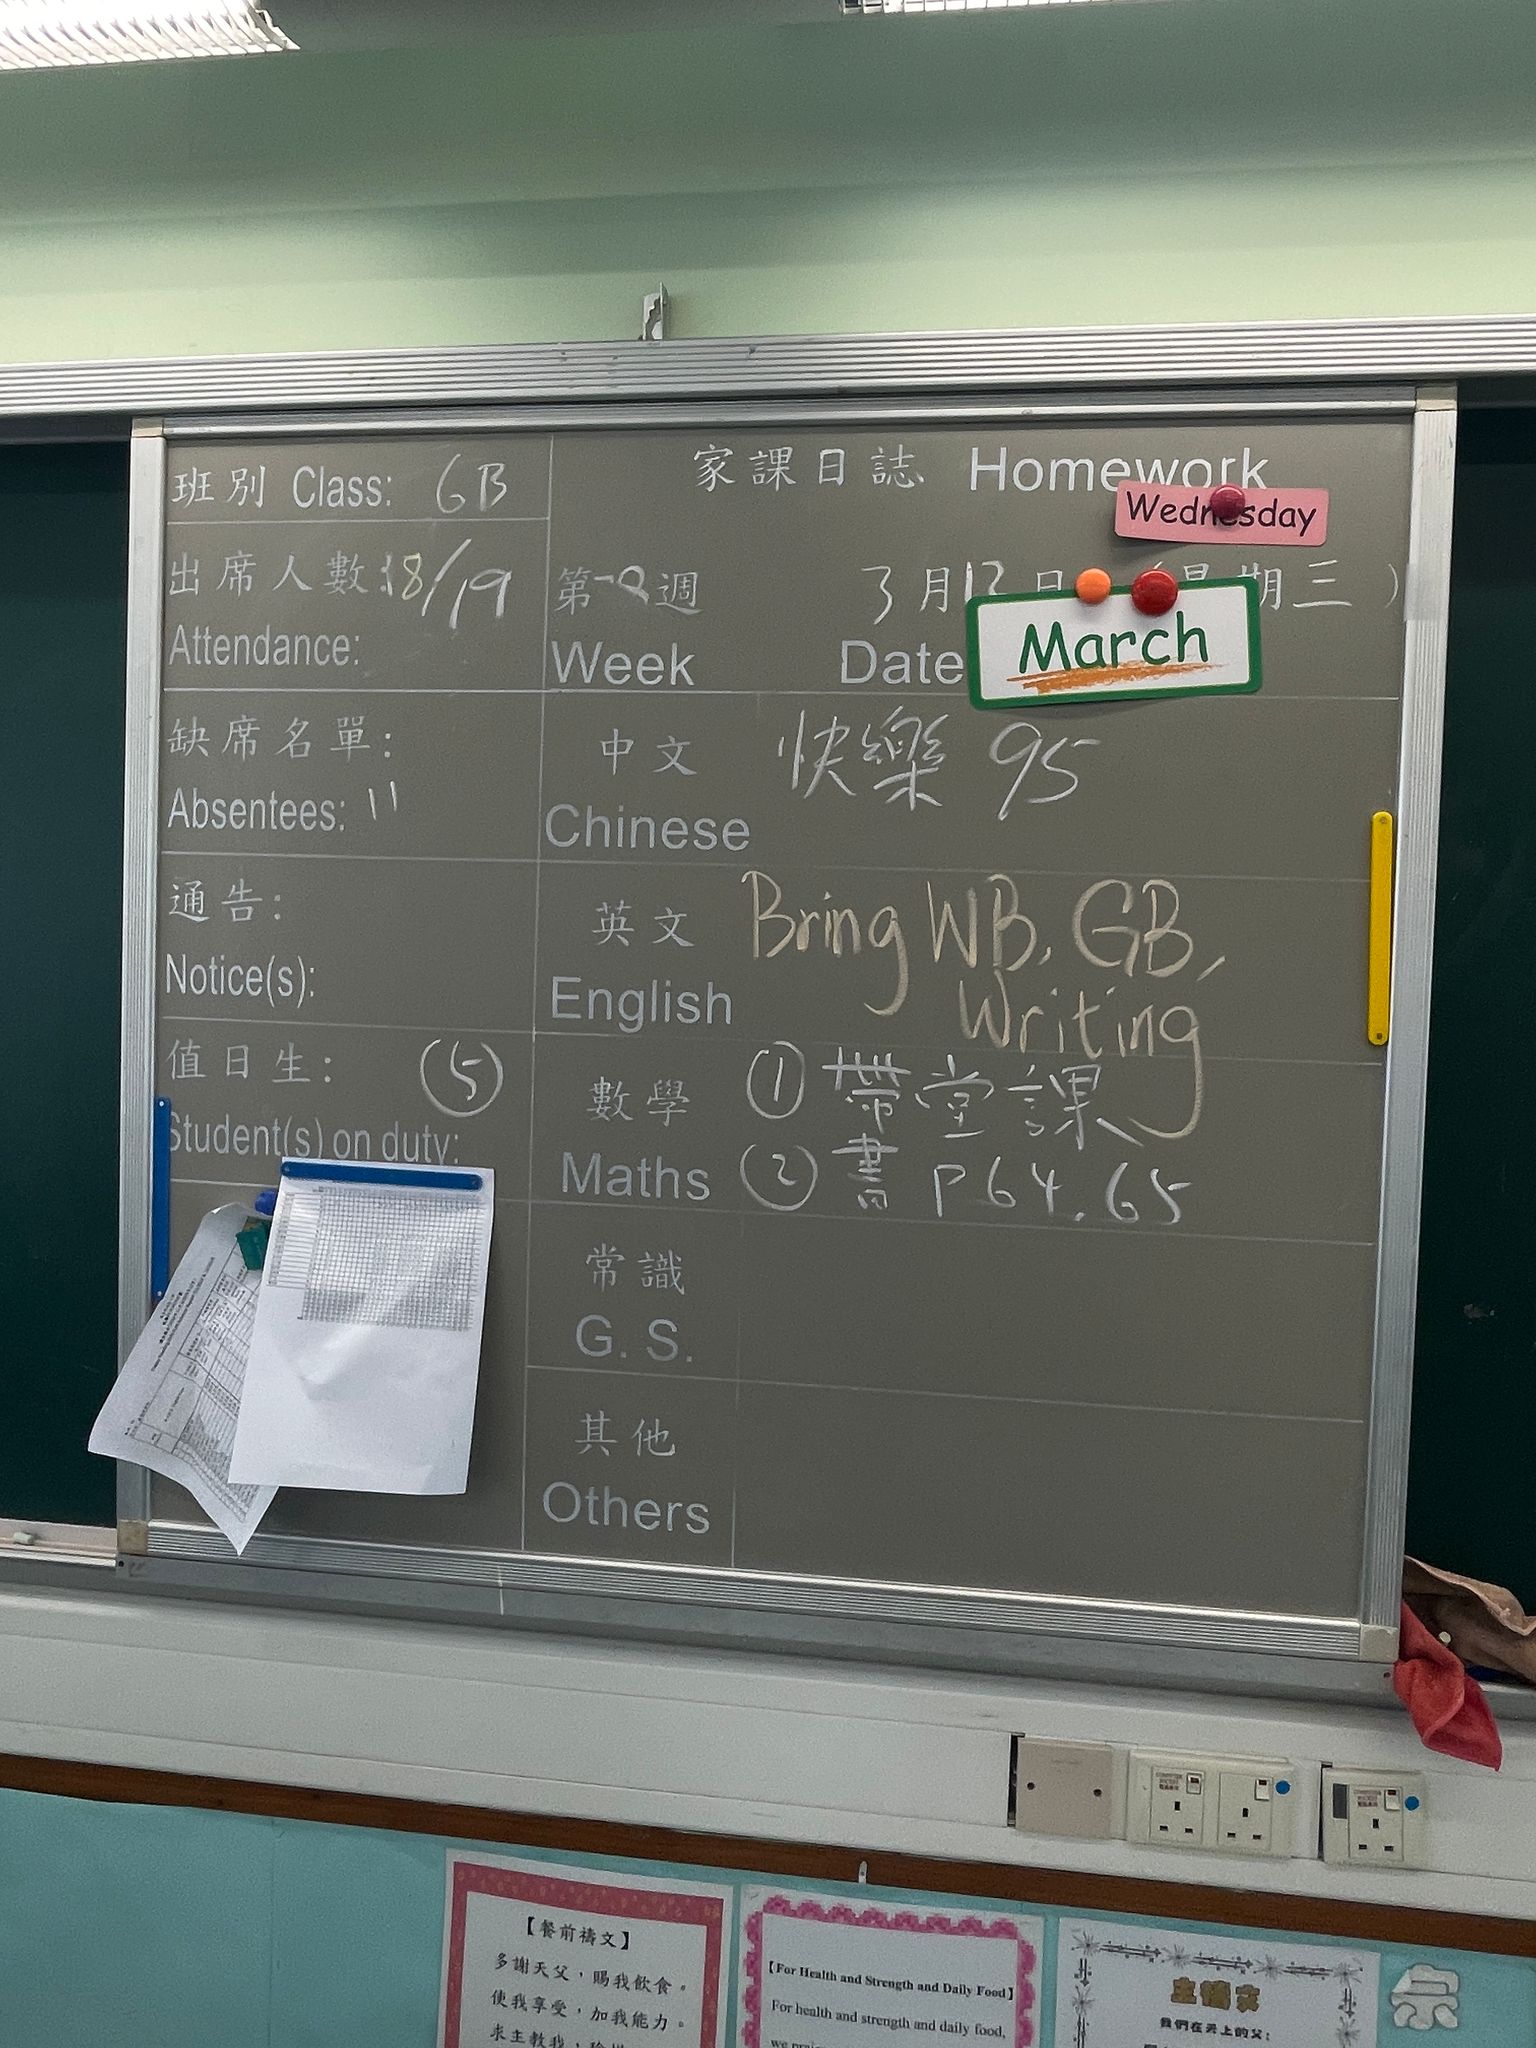 班別 Class: 6B
出席人數: 18/19
Attendance:
缺席名單:
Absentees: 11
通告:
Notice(s):
值日生: ⑤
Student(s) on duty:
家課日誌 Homework
Wednesday
第 週 3月12日 (星期三)
Week Date
March
中文 快樂 95
Chinese
英文 Bring WB, GB,
English Writing
數學 ① 帶堂課
Maths ② 書 P64.65
常識
G. S.
其他
Others
【餐前禱文】
多謝天父，賜我飲食。
使我享受，加我能力。
求主教我，
【For Health and Strength and Daily Food】
For health and strength and daily food,
we
主禱文
我們在天上的父：